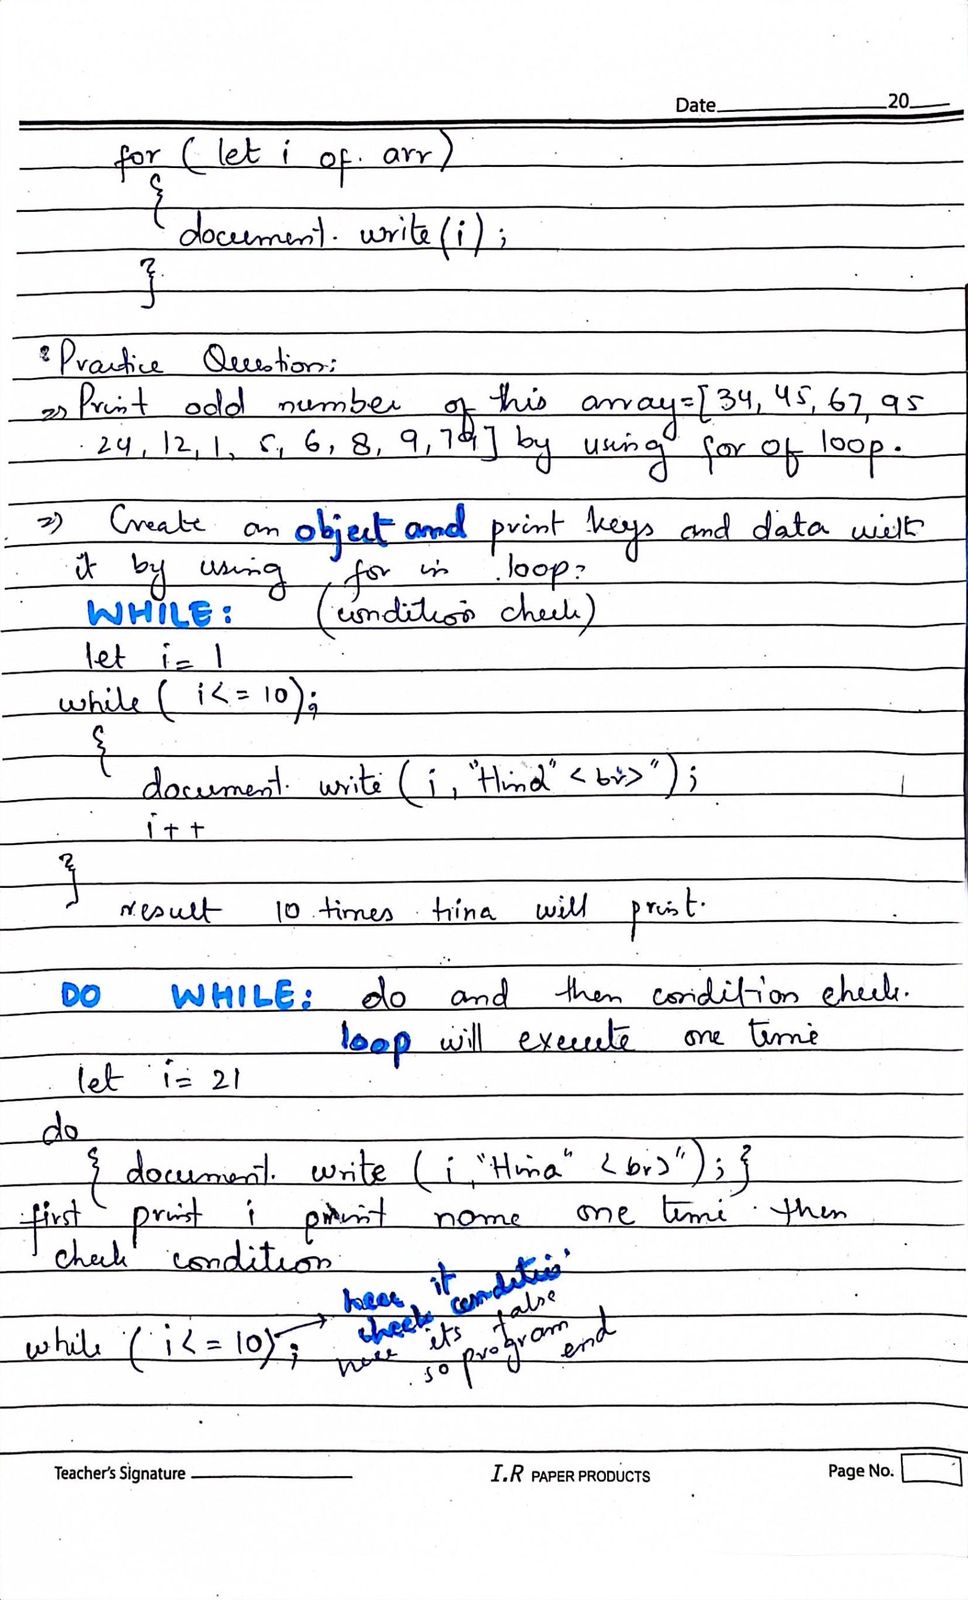 Date 20
for ( let i of. arr)
{
document. write(i);
}
Practice Question:
=> Print odd number of this array=[34, 45, 67, 95
24, 12, 1, 5, 6, 8, 9, ] by using for of loop.
=> Create an object and print keys and data with
it by using for in loop?
WHILE: (condition check)
let i= 1
while ( i<= 10);
{
document. write ( i, "Hina" <br>");
i++
}
result 10 times hina will print.
DO WHILE: do and then condition check.
loop will execute one time
let i= 21
do
{ document. write ( i, "Hina" <br>"); }
first print i print name one time then
check condition
here it
check condition
while ( i<= 10); here its false
so program end
Teacher's Signature I.R PAPER PRODUCTS Page No.